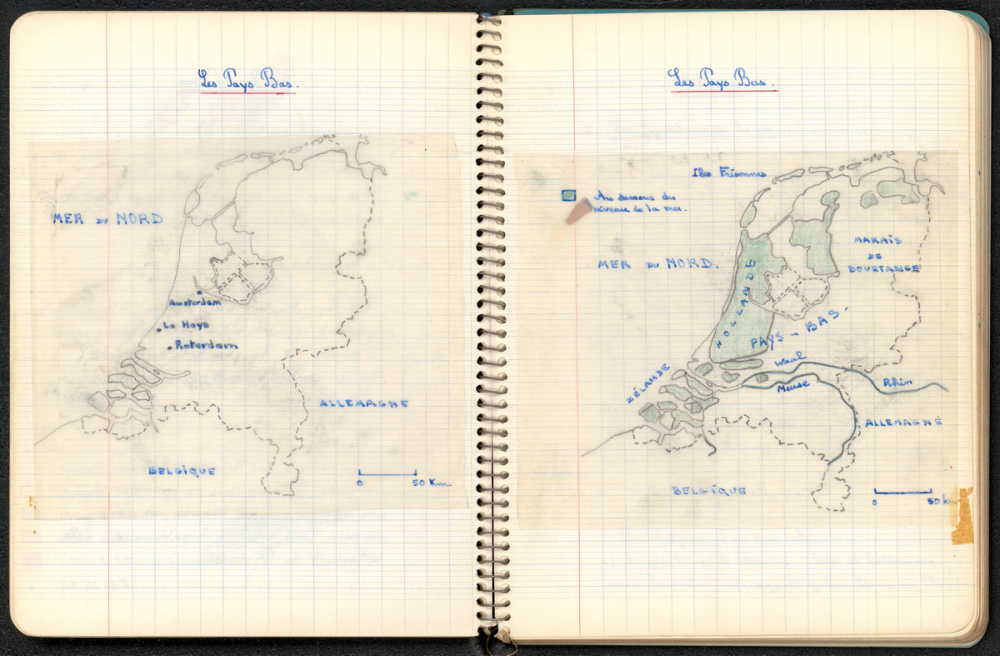 Les Pays Bas.
MER DU NORD
Amsterdam
La Haye
Roterdam
ALLEMAGNE
BELGIQUE
0 50 Km.
Les Pays Bas.
Iles Frisonnes
Au dessous du
niveau de la mer.
MER DU NORD.
MARAIS
DE
BOURTANGE
HOLLANDE
PAYS-BAS.
Waal
ZÉLANDE
Meuse
Rhin
ALLEMAGNE
BELGIQUE
0 50 k